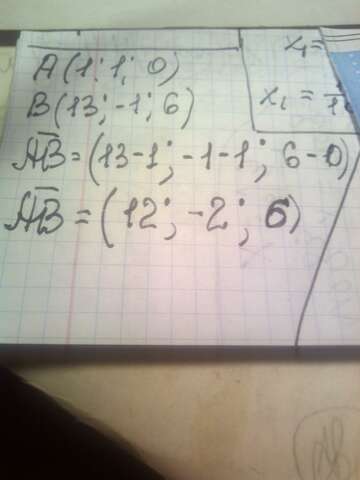 A(1; 1; 0)
B(13; -1; 6)
AB=(13-1; -1-1; 6-0)
AB = (12; -2; 6)
x₁=
x₁ =